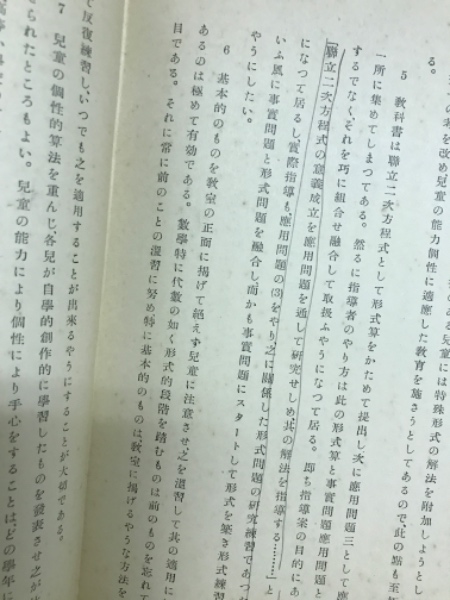 ある兒童には特殊形式の解法を附加しようとし
の案を改め兒童の能力個性に適應した教育を施さうとしてあるので、此の點も至極
る。
5 敎科書は聯立二次方程式として形式算をかためて提出し次に應用問題三として應
一所に集めてしまつてある。然るに指導者のやり方は此の形式算と事實問題應用問題と
するでなく、それを巧に組合せ融合して取扱ふやうになつて居る。卽ち指導案の目的にあ
「聯立二次方程式の意義成立を應用問題を通して硏究せしめ其の解法を指導する………」と
になつて居るし實際指導も、應用問題の(3)をやり之に關係した形式問題の硏究練習であつ
いふ風に事實問題と形式問題を融合し而かも事實問題にスタートして形式を築き形式練習
やうにしたい。
6 基本的のものを敎室の正面に揭げて絕えず兒童に注意させ之を溫習して其の適用に
あるのは極めて有効である。數學特に代數の如く形式的段階を踏むものは前のものを忘れて
目である。それに常に前のことの溫習に努め特に基本的のものは敎室に揭げるやうな方法を
て反復練習し、いつでも之を適用することが出來るやうにすることが大切である。
7 兒童の個性的算法を重んじ、各兒が自學的創作的に學習したものを發表させ之が
せられたところもよい。兒童の能力により個性により手心をすることは、どの學年に